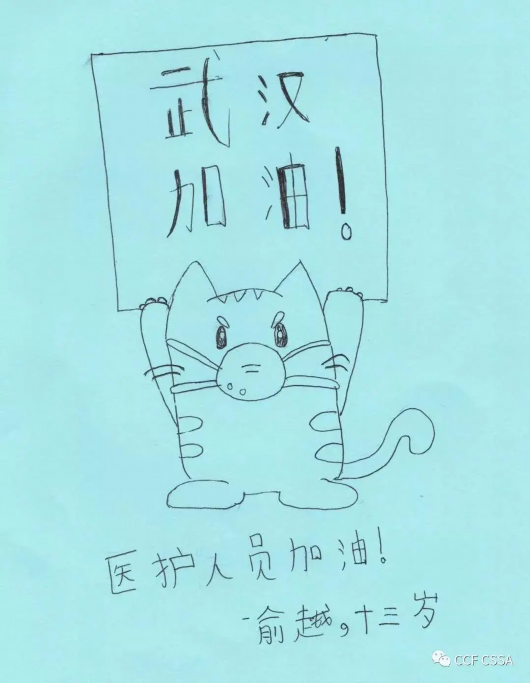 武汉
加油!
医护人员加油!
-俞越,十三岁
CCF CSSA